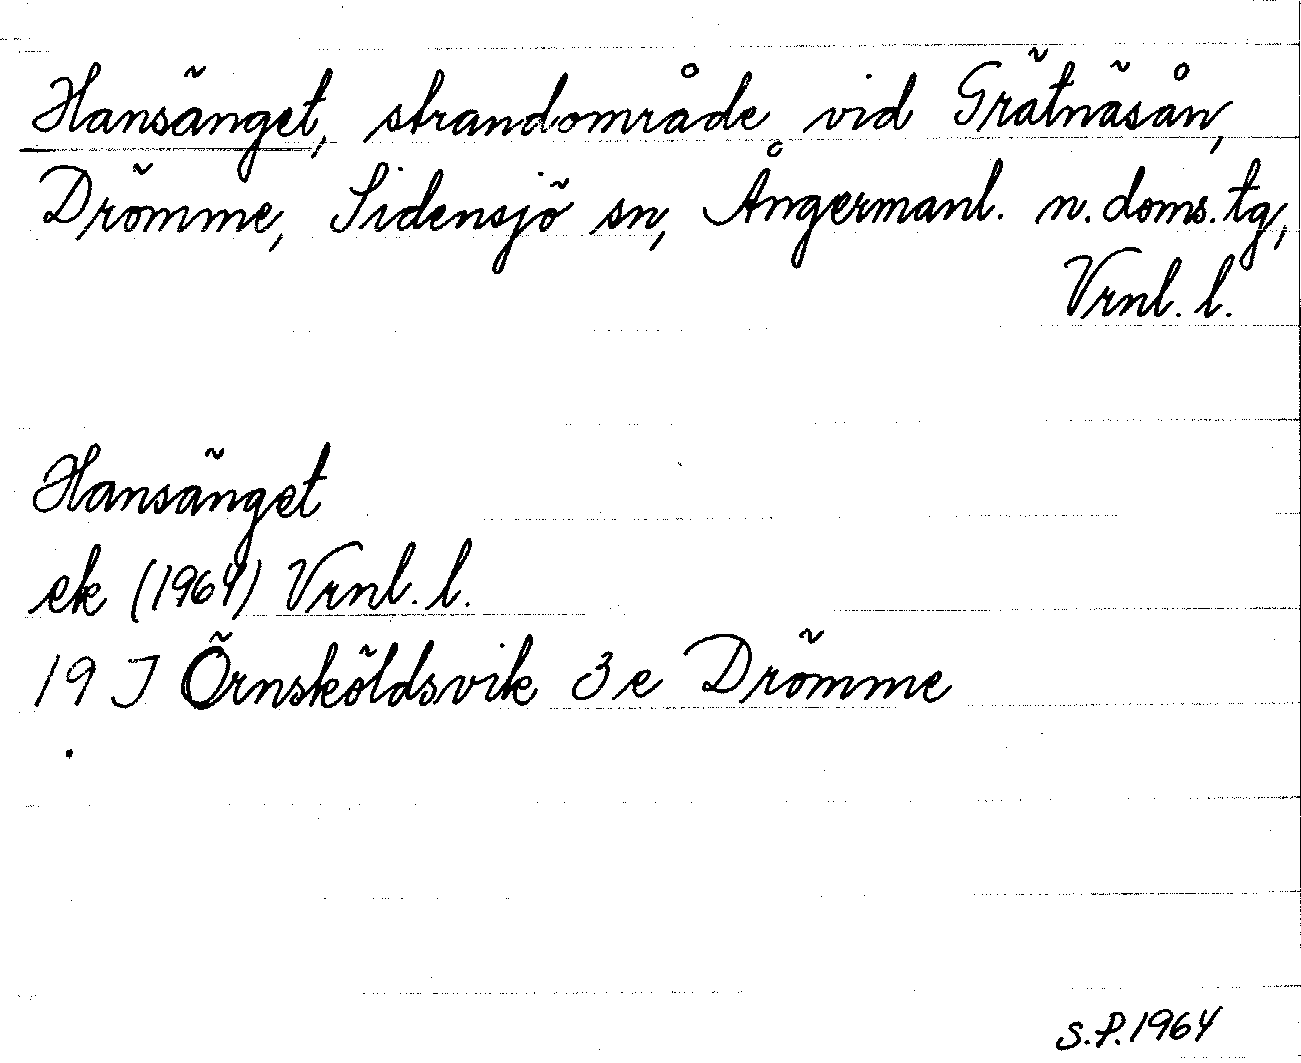 Hansänget, strandområde vid Grätnäsån,
Drömme, Sidensjö sn, Ångermanl. n. doms. tg,
Vrnl. l.
Hansänget
ek (1964) Vrnl. l.
19 J Örnsköldsvik 3e Drömme
S.P. 1964